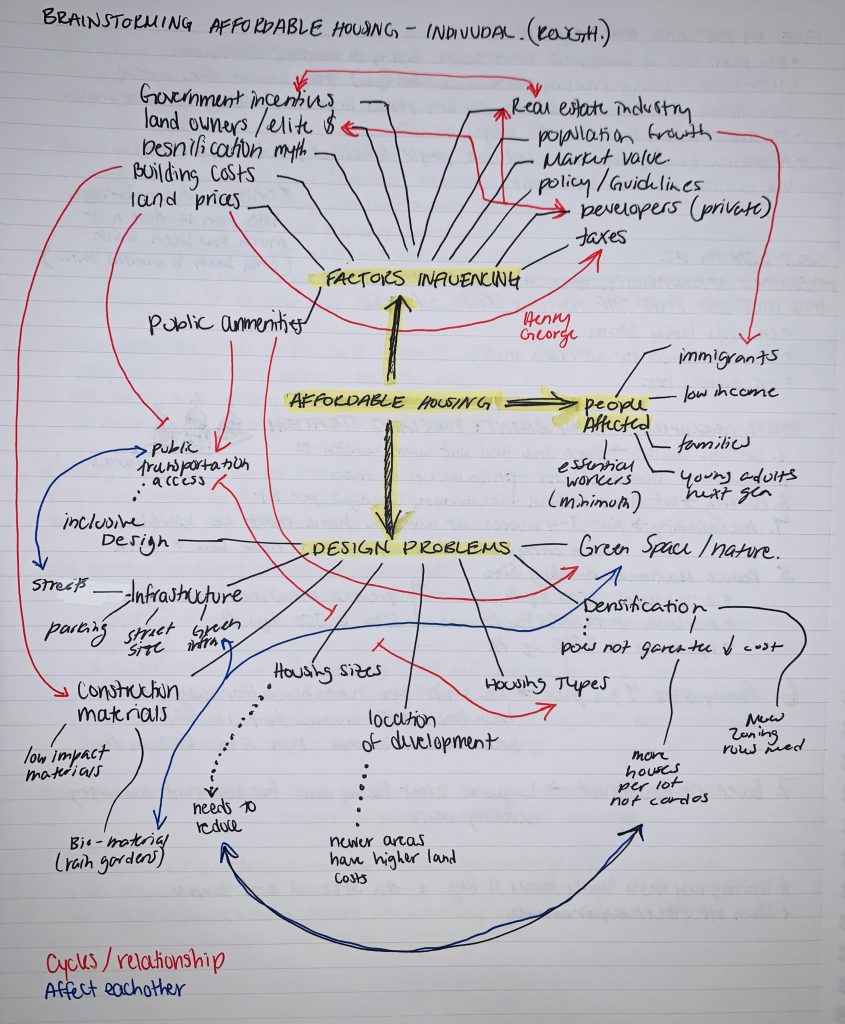 BRAINSTORMING AFFORDABLE HOUSING - INDIVUDAL. (ROUGH.)
Government incentives
land owners / elite $
Desnification myth
Building costs
land prices
Real estate industry
population Growth
Market value
policy / Guidelines
Developers (private)
taxes
FACTORS INFLUENCING
Public ammenities
Henry
George
AFFORDABLE HOUSING
people
Affected
immigrants
low income
families
young adults
next gen
essential
workers
(minimum)
public
transportation
access
inclusive
Design
DESIGN PROBLEMS
Green Space / nature.
streets
Infrastructure
parking
street
size
Green
infra
Densification
Does not garentee ↓ cost
New
Zoning
rules need
more
houses
per lot
not condos
Housing sizes
Housing Types
Construction
materials
location
of development
low impact
materials
needs to
reduce
Bio-material
(rain gardens)
newer areas
have higher land
costs
Cycles / relationship
Affect eachother